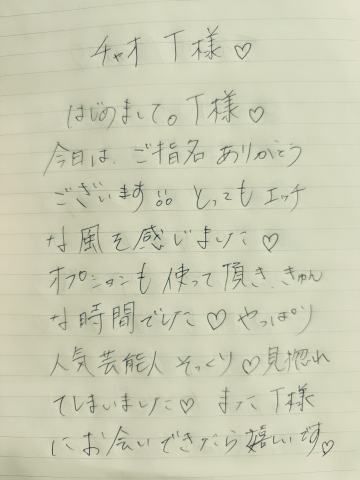 チャオ T様♡
はじめまして。T様♡
今日は、ご指名ありがとう
ございます!! とってもエッチ
な風を感じました♡
オプションも使って頂き、きゅん
な時間でした♡ やっぱり
人気芸能人そっくり♡見惚れ
てしまいました♡ またT様
にお会いできたら嬉しいです♡